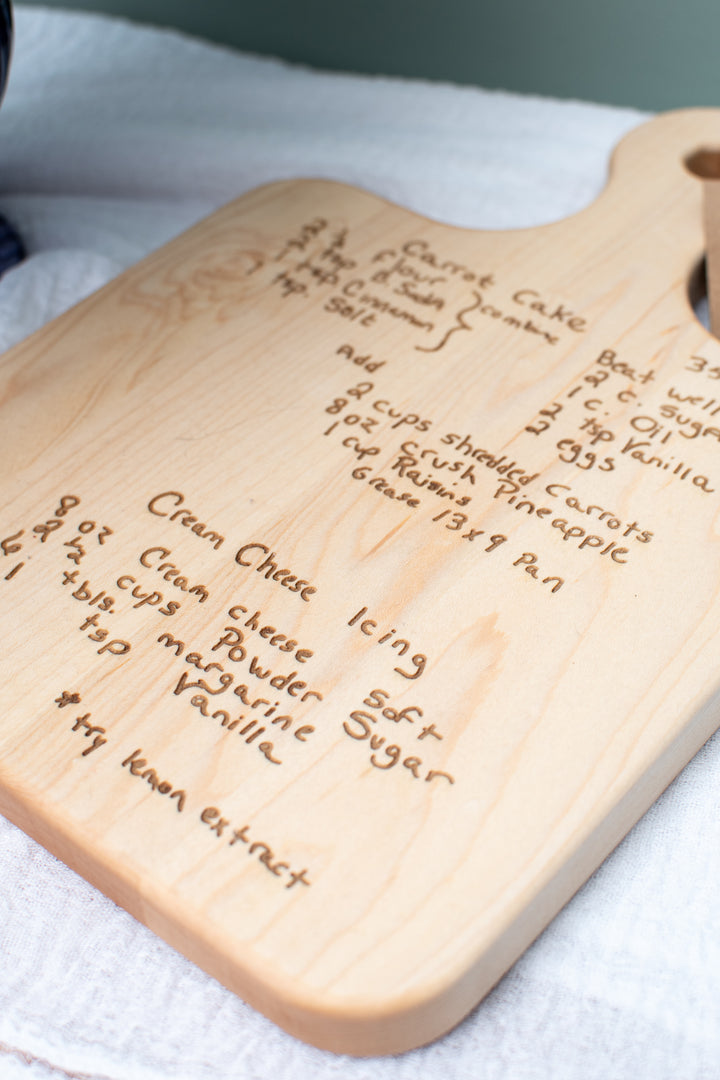 Carrot Cake
flour
tsp B. Soda
tsp Cinnamon } combine
tsp. Salt
35
Beat well
2 c. Suga
1 c. Oil
2 tsp Vanilla
2 eggs
Add
2 cups shredded Carrots
8 oz crush Pineapple
1 cup Raisins
Grease 13 x 9 Pan
Cream Cheese Icing
8 oz Cream cheese Soft
2 ½ cups Powder Sugar
6 tbls. margarine
1 tsp Vanilla
*try lemon extract